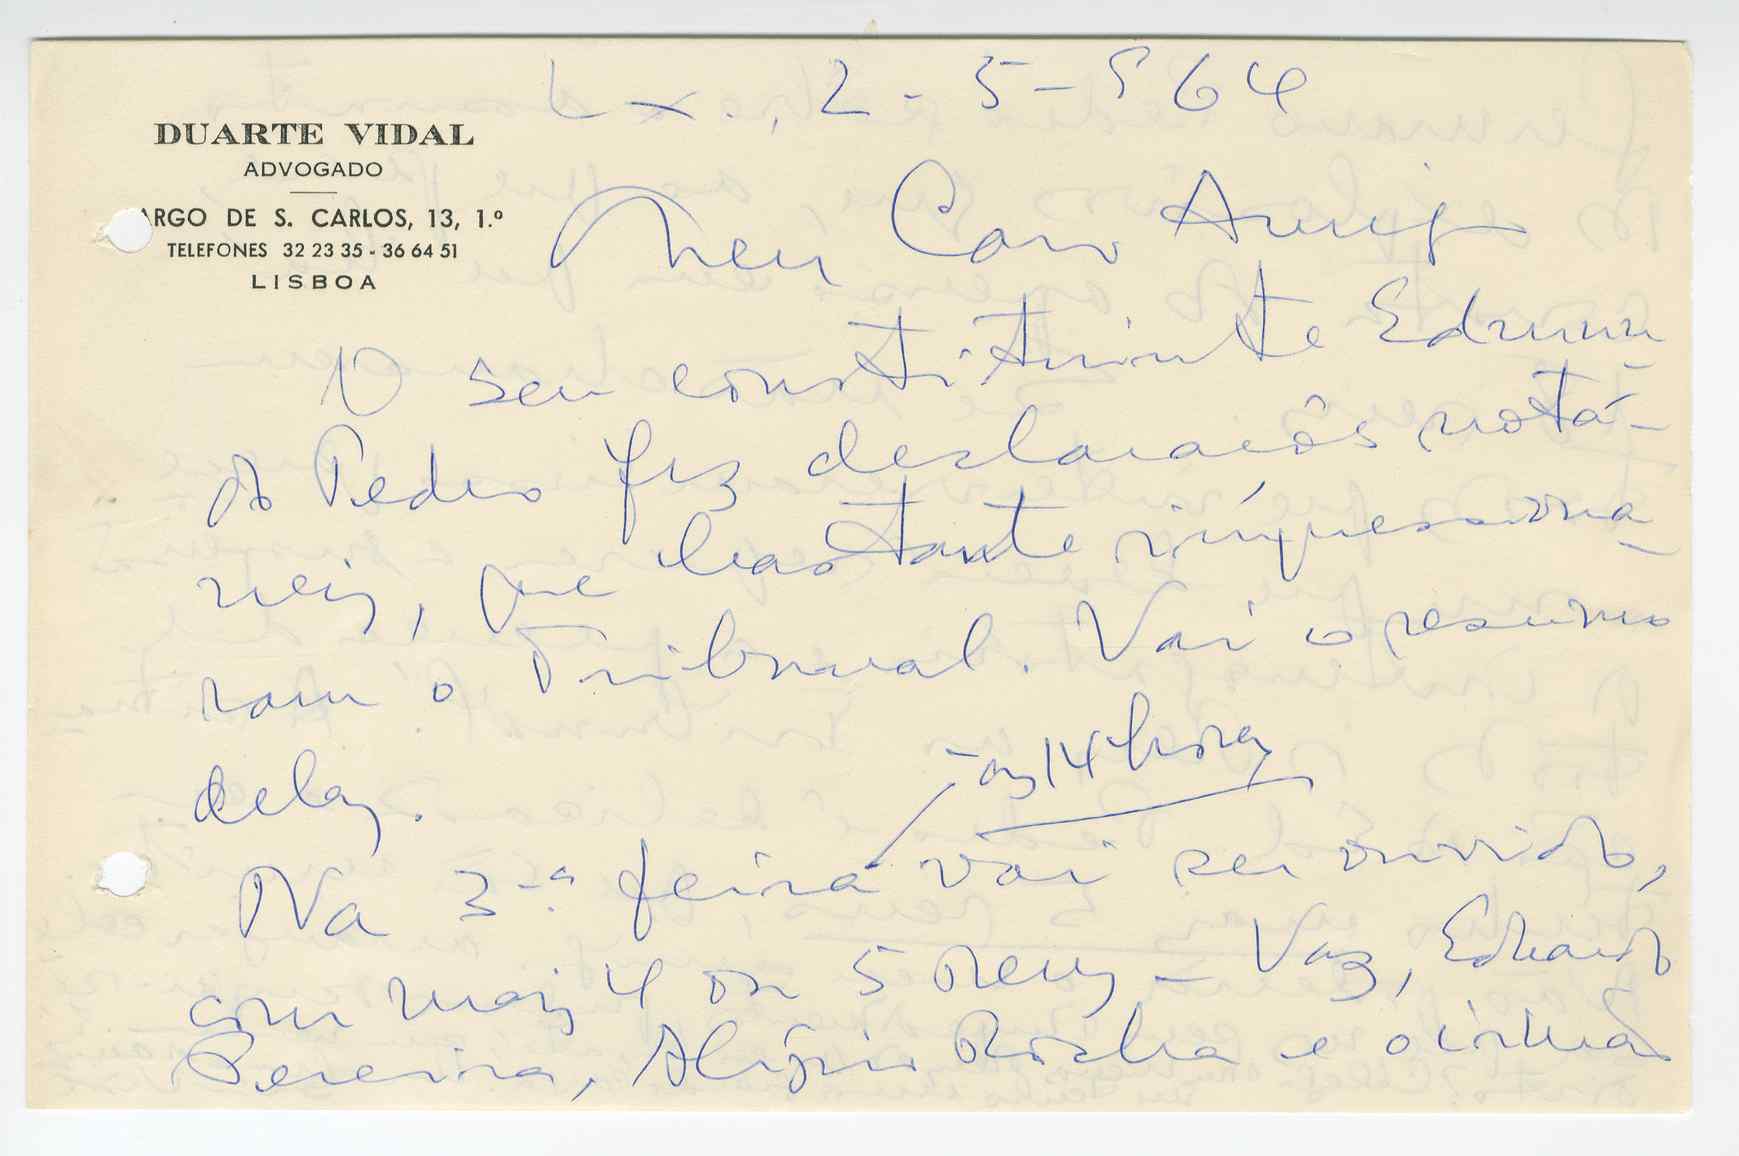 Lx., 2-5-964
DUARTE VIDAL
ADVOGADO
ARGO DE S. CARLOS, 13, 1.º
TELEFONES 32 23 35 - 36 64 51
LISBOA
Meu Caro Amigo
O seu constituinte Edmun-
do Pedro fez declarações notá-
veis, que bastante impressiona-
ram o Tribunal. Vai o resumo
delas.
- às 14 horas
Na 3.ª feira vai ser ouvido,
com mais 4 ou 5 reus - Vaz, Eduardo
Pereira, Alípio Rocha e o irmão